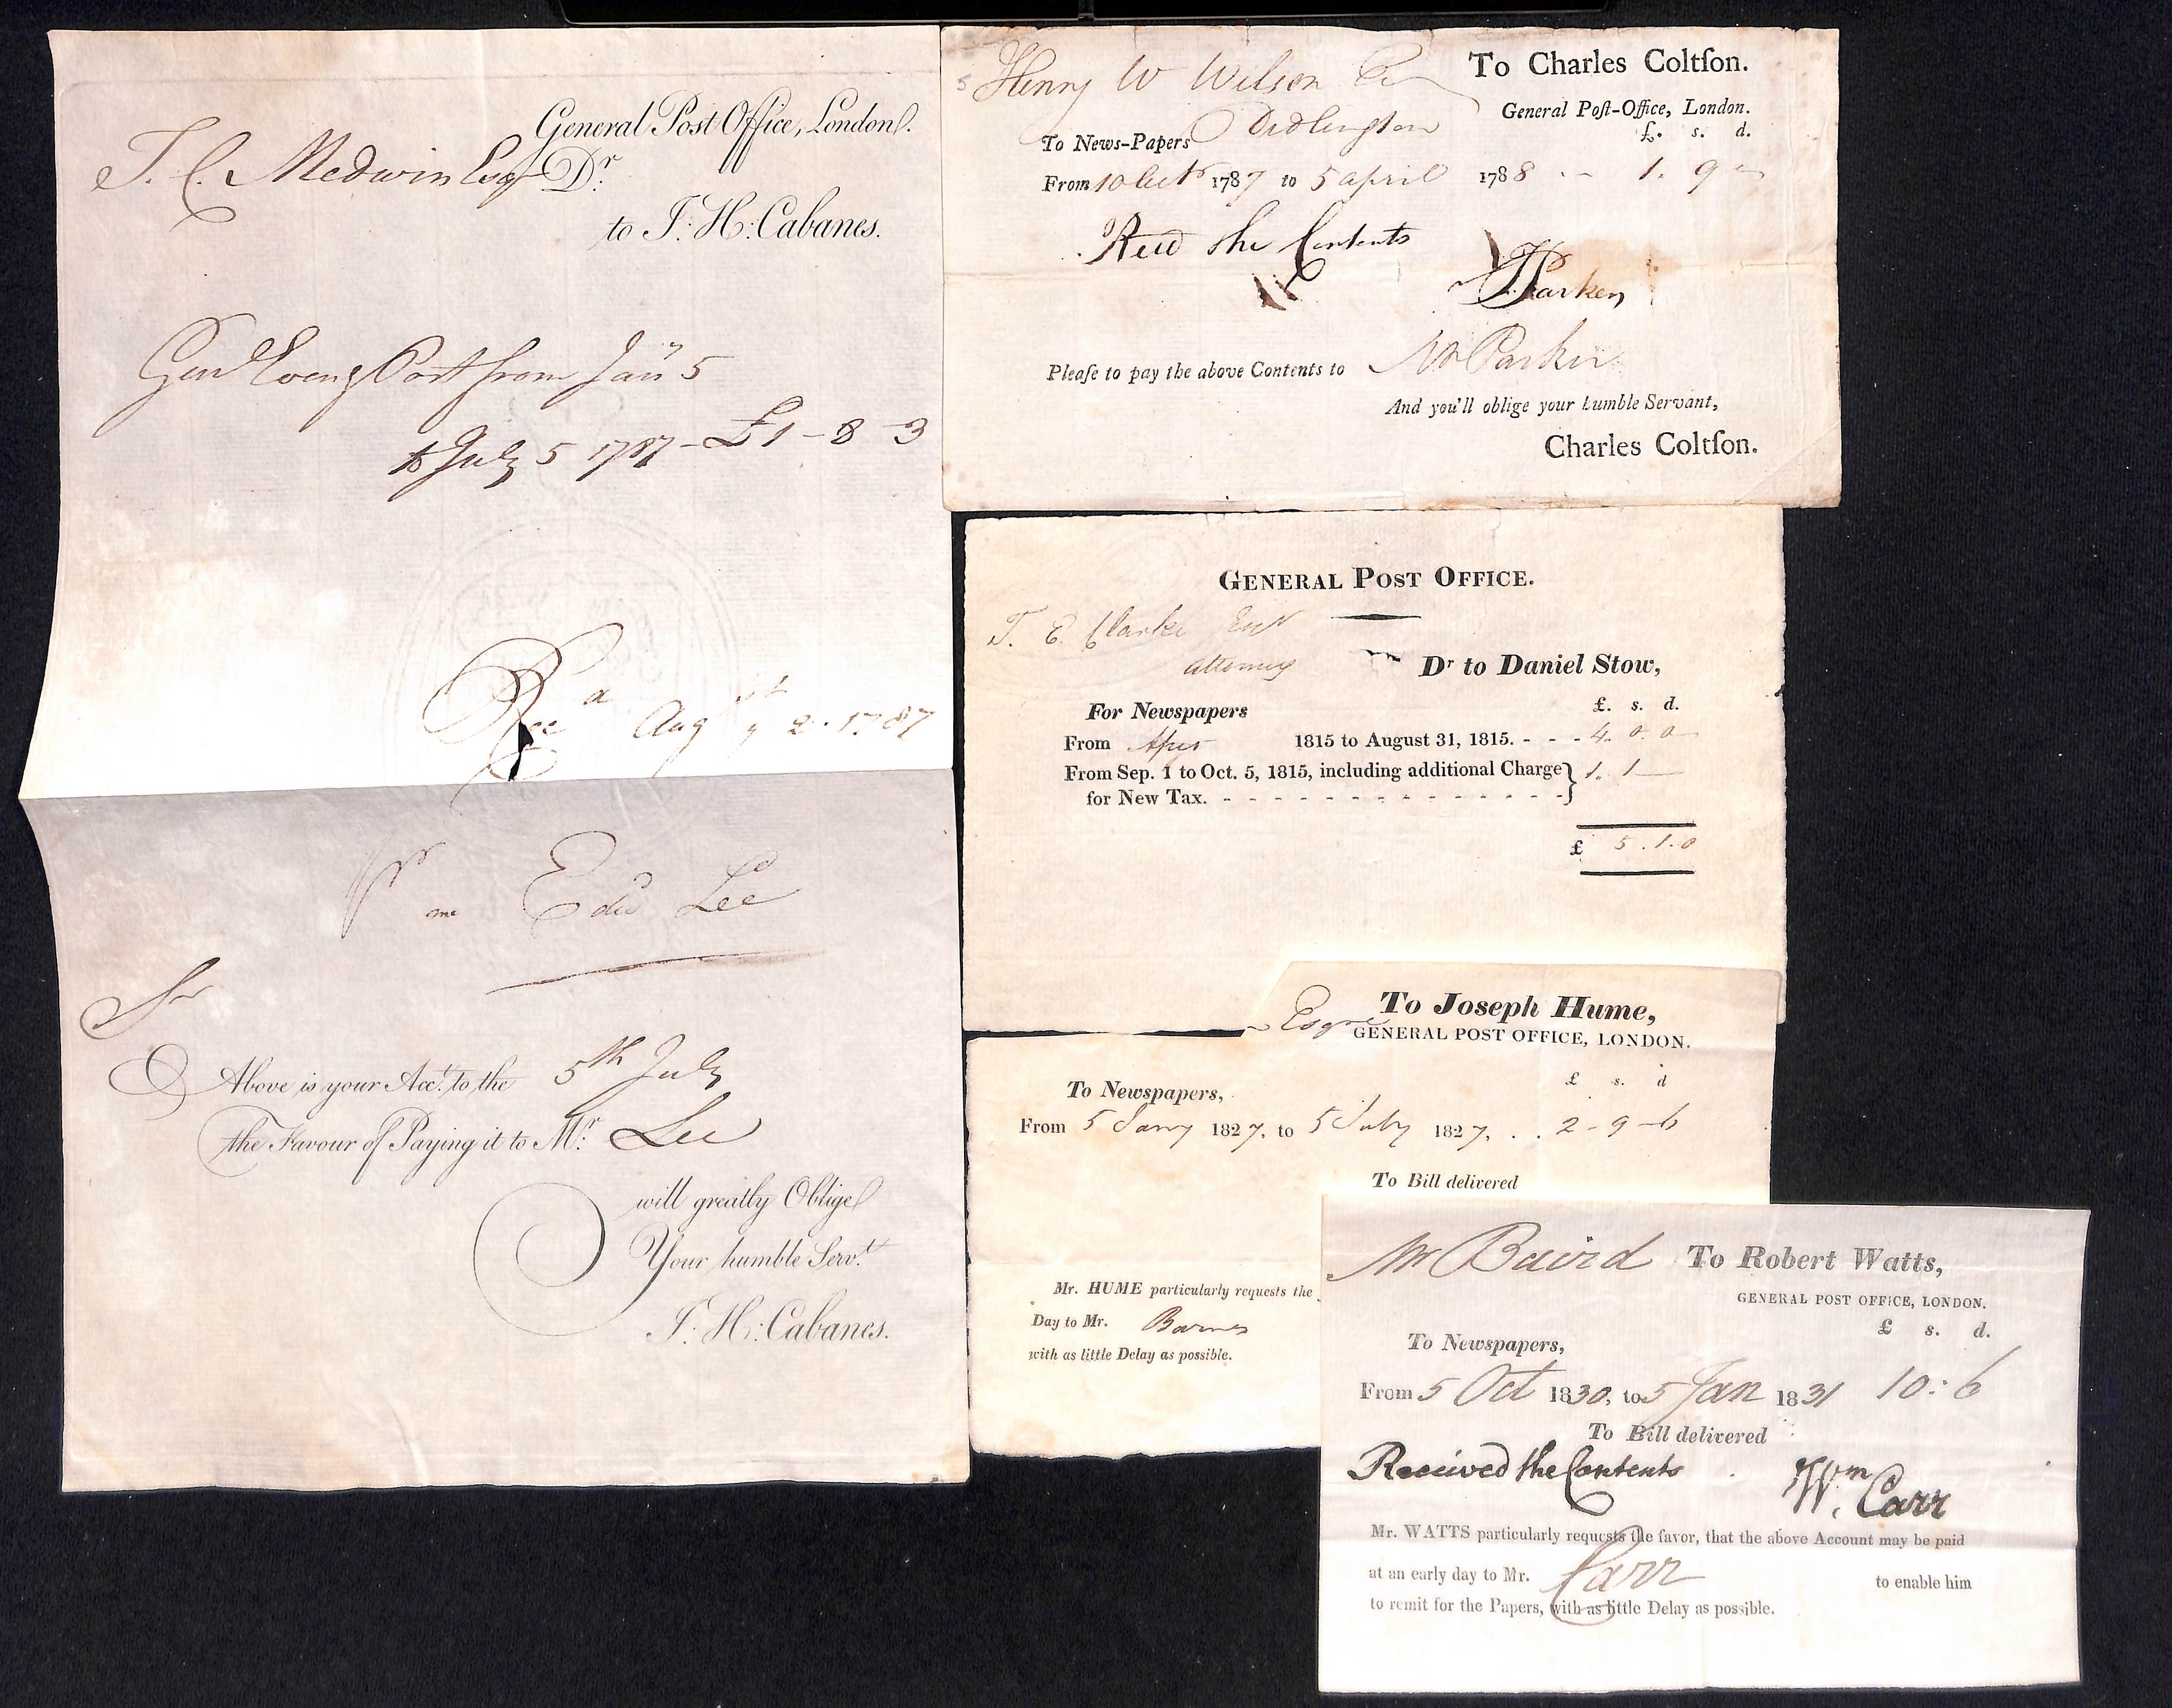 General Post Office, London.
T. C. Medwin Esqr Dr.
to J: H: Cabanes.
Genl Eveng Post from Jany 5
to July 5 1787 - £1 - 8 - 3
Recd Augst 2 . 1787
Pr me Edwd Lee
Sr
Above is your Acct. to the 5th July
the Favour of Paying it to Mr. Lee
will greatly Oblige
Your humble Servt.
J: H: Cabanes.
Henry W Wilson To Charles Coltſon.
Didlington General Poſt-Office, London.
To News-Papers £. s. d.
From 10 Octr 1787 to 5 april 1788 - - 1. 9 -
Recd the Contents
Parken
Pleaſe to pay the above Contents to Mr Parker
And you'll oblige your humble Servant,
Charles Coltſon.
GENERAL POST OFFICE.
T. E. Clarke Esqr
attorney Dr to Daniel Stow,
For Newspapers £. s. d.
From 1815 to August 31, 1815. - - - 4. 0. 0
From Sep. 1 to Oct. 5, 1815, including additional Charge } 1. 1 -
for New Tax. - - - - - - - - - - - - - -
£ 5 . 1 . 0
Esqre To Joseph Hume,
GENERAL POST OFFICE, LONDON.
£ s. d
To Newspapers,
From 5 Jany 1827, to 5 July 1827, . . 2 - 9 - 6
To Bill delivered
Mr. HUME particularly requests the
Day to Mr. Barnes
with as little Delay as possible.
Mr Baird To Robert Watts,
GENERAL POST OFFICE, LONDON.
£ s. d.
To Newspapers,
From 5 Oct 1830, to 5 Jan 1831 10: 6
To Bill delivered
Received the Contents
Wm. Carr
Mr. WATTS particularly requests the favor, that the above Account may be paid
at an early day to Mr. Carr to enable him
to remit for the Papers, with as little Delay as possible.